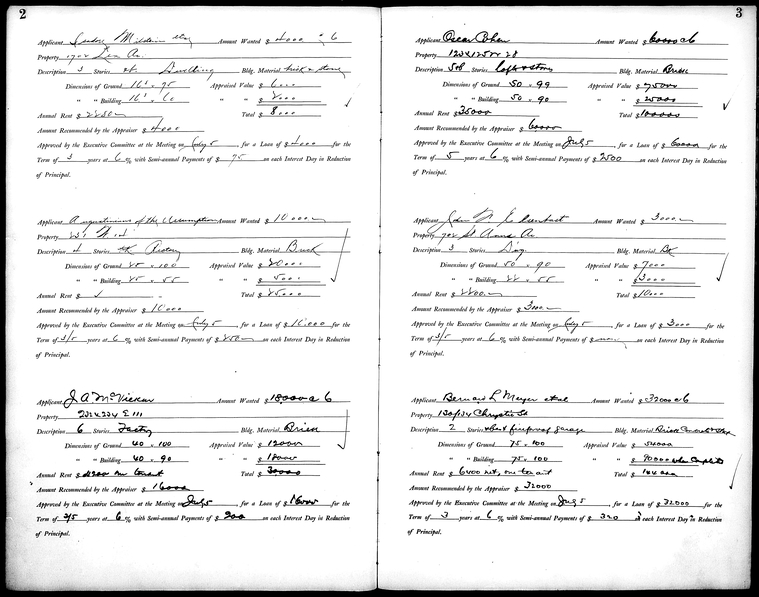 2
Applicant Amount Wanted $ 4000 6
Property 1702 Lex Av.
Description 3 Stories Dwelling Bldg. Material brick & stone
Dimensions of Ground 16' × 95 Appraised Value $ 6000
" " Building 16' × 60 " " $ 2000
Annual Rent $ Total $ 8000
Amount Recommended by the Appraiser $ 4000
Approved by the Executive Committee at the Meeting on July 5 for a Loan of $ 4000 for the
Term of 3 years at 6 % with Semi-annual Payments of $ 75 on each Interest Day in Reduction
of Principal.
Applicant Augustinians of the Assumption Amount Wanted $ 10000
Property W 14
Description 4 Stories Rectory Bldg. Material Brick
Dimensions of Ground 25 × 100 Appraised Value $ 20000
" " Building 25 × 55 " " $ 5000
Annual Rent $ Total $ 25000
Amount Recommended by the Appraiser $ 10'000
Approved by the Executive Committee at the Meeting on July 5 for a Loan of $ 10'000 for the
Term of 3/5 years at 6 % with Semi-annual Payments of $ 250 on each Interest Day in Reduction
of Principal.
Applicant J. A. McVickar Amount Wanted $ 18000 a 6
Property 232 & 234 E 111
Description 6 Stories Factory Bldg. Material Brick
Dimensions of Ground 40 × 100 Appraised Value $ 12000
" " Building 40 × 90 " " $ 18000
Annual Rent $ 4200 one tenant Total $ 30000
Amount Recommended by the Appraiser $ 16000
Approved by the Executive Committee at the Meeting on July 5 for a Loan of $ 16000 for the
Term of 3/5 years at 6 % with Semi-annual Payments of $ 200 on each Interest Day in Reduction
of Principal.
3
Applicant Oscar Cohen Amount Wanted $ 60000 a 6
Property
Description 5&8 Stories lofts & stores Bldg. Material Brick
Dimensions of Ground 50 × 99 Appraised Value $ 75000
" " Building 50 × 90 " " $ 25000
Annual Rent $ 25000 Total $ 100000
Amount Recommended by the Appraiser $ 60000
Approved by the Executive Committee at the Meeting on July 5 for a Loan of $ 60000 for the
Term of 5 years at 6 % with Semi-annual Payments of $ 2500 on each Interest Day in Reduction
of Principal.
Applicant John N. Eisenhart Amount Wanted $ 3000
Property 702 St Anns Av
Description 3 Stories Dwg. Bldg. Material Bk
Dimensions of Ground 50 × 90 Appraised Value $ 7000
" " Building 22 × 55 " " $ 3000
Annual Rent $ Total $ 10000
Amount Recommended by the Appraiser $ 3000
Approved by the Executive Committee at the Meeting on July 5 for a Loan of $ 3000 for the
Term of 3/5 years at 6 % with Semi-annual Payments of $ on each Interest Day in Reduction
of Principal.
Applicant Bernard L Meyer et al Amount Wanted $ 32000 a 6
Property 130/134 Chrystie St
Description 2 Stories & bsmt fireproof garage Bldg. Material Brick Concrete
Dimensions of Ground 75 × 100 Appraised Value $ 54000
" " Building 75 × 100 " " $ 90000 when Complete
Annual Rent $ 6400 net, one tenant Total $ 144000
Amount Recommended by the Appraiser $ 32000
Approved by the Executive Committee at the Meeting on July 5 for a Loan of $ 32000 for the
Term of 3 years at 6 % with Semi-annual Payments of $ 320 on each Interest Day in Reduction
of Principal.